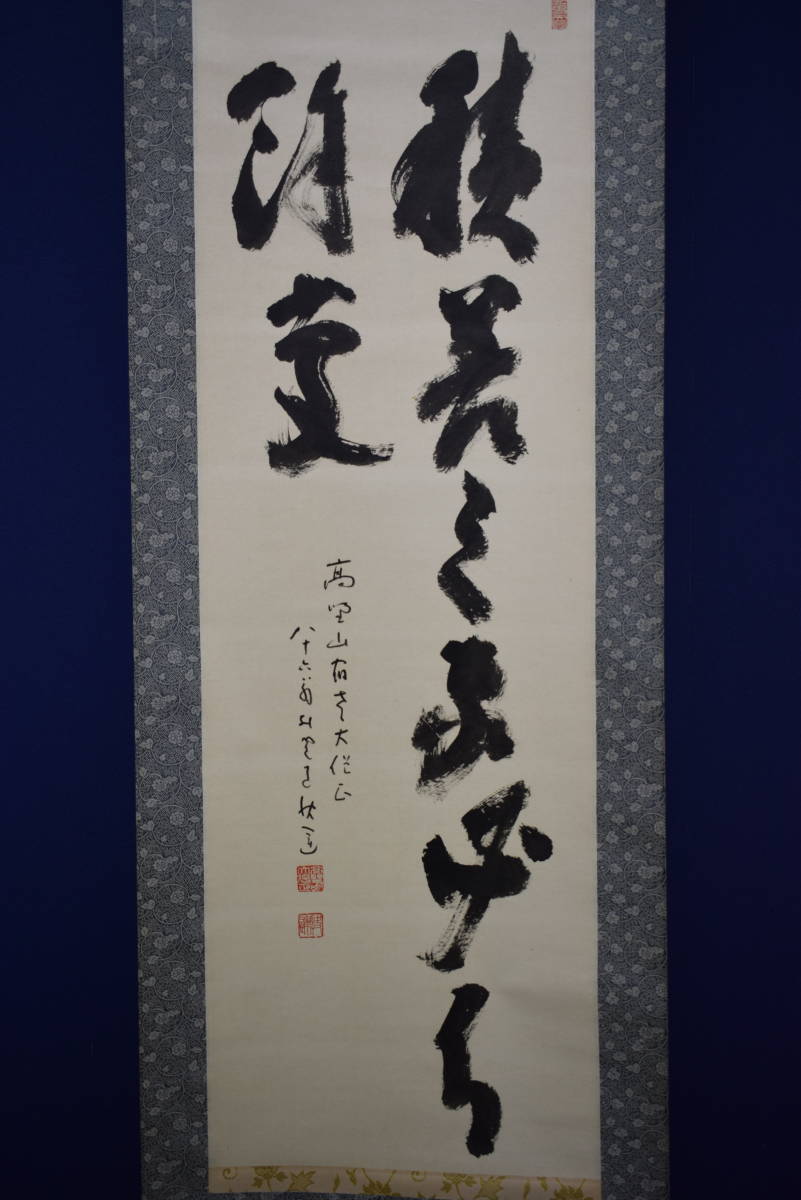 積善之家必有
餘慶
高野山管長大僧正
八十六翁